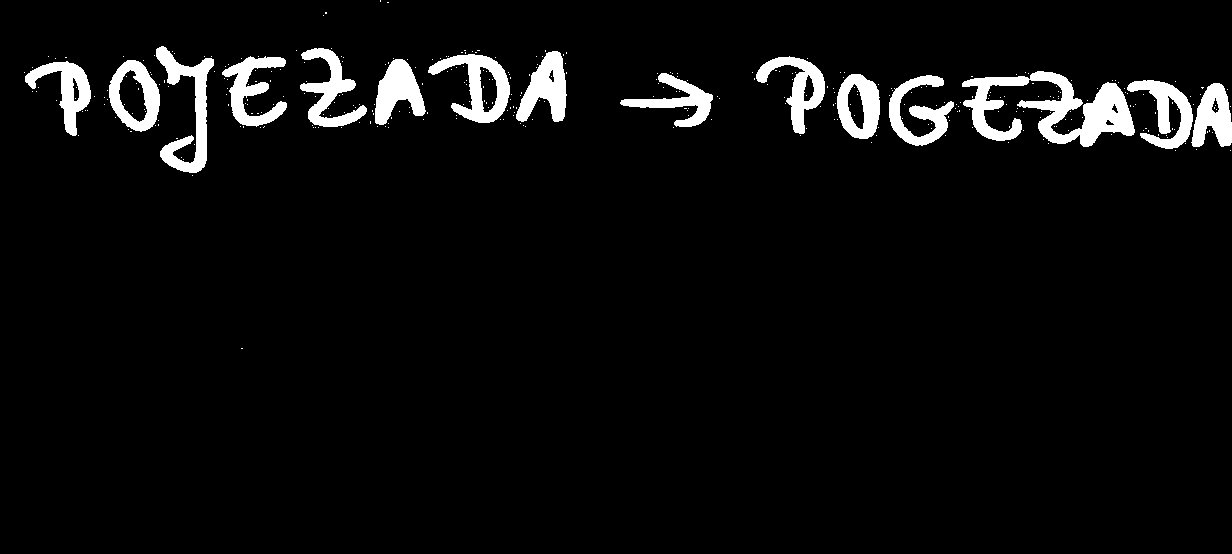 POJEZADA → POGEZADA